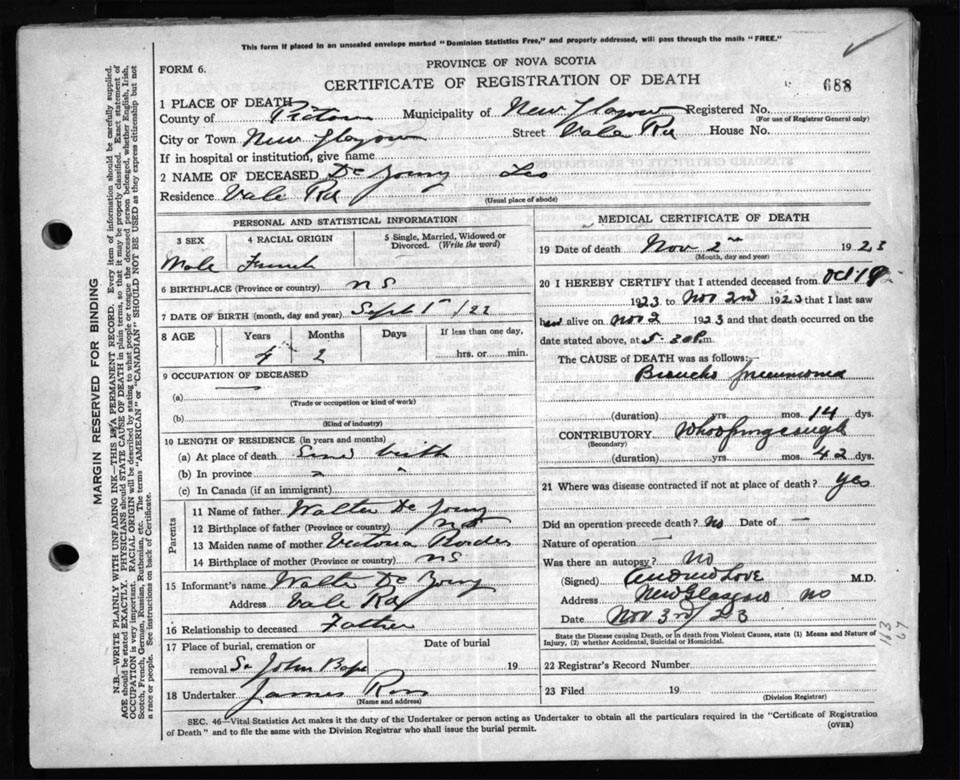 This form if placed in an unsealed envelope marked "Dominion Statistics Free," and properly addressed, will pass through the mails "FREE."
FORM 6.
PROVINCE OF NOVA SCOTIA
CERTIFICATE OF REGISTRATION OF DEATH
688
1 PLACE OF DEATH
County of Pictou Municipality of New Glasgow Registered No.
(For use of Registrar General only)
City or Town New Glasgow Street Vale Rd House No.
If in hospital or institution, give name
2 NAME OF DECEASED De Young Leo
Residence Vale Rd
(Usual place of abode)
PERSONAL AND STATISTICAL INFORMATION
3 SEX 4 RACIAL ORIGIN 5 Single, Married, Widowed or Divorced. (Write the word)
Male French
6 BIRTHPLACE (Province or country) NS
7 DATE OF BIRTH (month, day and year) Sept 1st /22
8 AGE Years Months Days If less than one day,
2 hrs. or min.
9 OCCUPATION OF DECEASED
(a)
(Trade or occupation or kind of work)
(b)
(Kind of industry)
10 LENGTH OF RESIDENCE (in years and months)
(a) At place of death Since birth
(b) In province " "
(c) In Canada (if an immigrant)
Parents
11 Name of father Walter De Young
12 Birthplace of father (Province or country) NS
13 Maiden name of mother Victoria
14 Birthplace of mother (Province or country) NS
15 Informant's name Walter De Young
Address Vale Rd
16 Relationship to deceased Father
17 Place of burial, cremation or Date of burial
removal St John Bapt 19
18 Undertaker James Ross
(Name and address)
MEDICAL CERTIFICATE OF DEATH
19 Date of death Nov 2nd 1923
(Month, day and year)
20 I HEREBY CERTIFY that I attended deceased from Oct 19
1923 to Nov 2nd 1923 that I last saw
him alive on Nov 2 1923 and that death occurred on the
date stated above, at 5-30 P.m.
The CAUSE of DEATH was as follows:
Broncho pneumonia
(duration) yrs. mos. 14 dys.
CONTRIBUTORY Whooping cough
(Secondary)
(duration) yrs. mos. 42 dys.
21 Where was disease contracted if not at place of death? yes
Did an operation precede death? No Date of —
Nature of operation —
Was there an autopsy? No
(Signed) Andrew Love M.D.
Address New Glasgow NS
Date Nov 3rd /23
State the Disease causing Death, or in death from Violent Causes, state (1) Means and Nature of
Injury, (2) whether Accidental, Suicidal or Homicidal.
22 Registrar's Record Number
23 Filed 19
(Division Registrar)
SEC. 46—Vital Statistics Act makes it the duty of the Undertaker or person acting as Undertaker to obtain all the particulars required in the "Certificate of Registration
of Death" and to file the same with the Division Registrar who shall issue the burial permit.
(OVER)
MARGIN RESERVED FOR BINDING
N.B.—WRITE PLAINLY WITH UNFADING INK—THIS IS A PERMANENT RECORD. Every item of information should be carefully supplied.
AGE should be stated EXACTLY. PHYSICIANS should STATE CAUSE OF DEATH in plain terms, so that it may be properly classified. Exact statement of
OCCUPATION is very important. RACIAL ORIGIN will be described by stating to what people or tongue the deceased person belonged, whether English, Irish,
Scotch, French, German, Russian, Ruthenian, etc. The terms "AMERICAN" or "CANADIAN" SHOULD NOT BE USED as they express citizenship but not
a race or people. See instructions on back of Certificate.